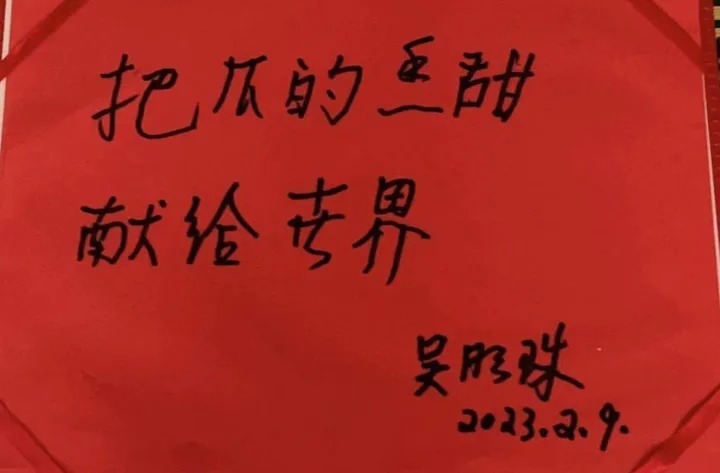 把瓜的香甜
献给世界
吴明珠
2023.2.9.